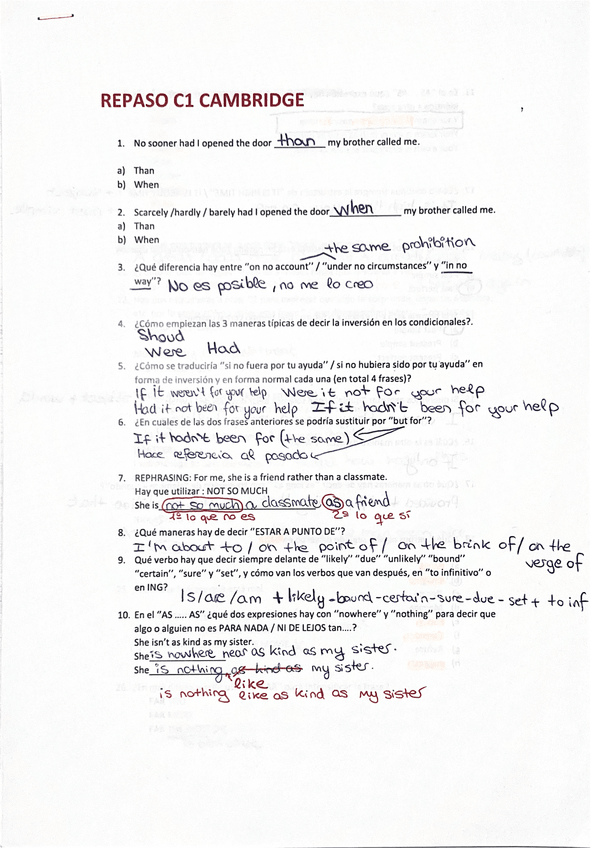 REPASO C1 CAMBRIDGE
1. No sooner had I opened the door than my brother called me.
a) Than
b) When
2. Scarcely /hardly / barely had I opened the door when my brother called me.
a) Than
b) When
the same prohibition
3. ¿Qué diferencia hay entre "on no account" / "under no circumstances" y "in no
way"? No es posible, no me lo creo
4. ¿Cómo empiezan las 3 maneras típicas de decir la inversión en los condicionales?.
Shoud
Were Had
5. ¿Cómo se traduciría "si no fuera por tu ayuda" / si no hubiera sido por tu ayuda" en
forma de inversión y en forma normal cada una (en total 4 frases)?
If it weren't for your help Were it not for your help
Had it not been for your help If it hadn't been for your help
6. ¿En cuales de las dos frases anteriores se podría sustituir por "but for"?
If it hadn't been for (the same)
Hace referencia al pasado
7. REPHRASING: For me, she is a friend rather than a classmate.
Hay que utilizar : NOT SO MUCH
She is not so much a classmate as a friend
1º lo que no es 2º lo que sí
8. ¿Qué maneras hay de decir "ESTAR A PUNTO DE"?
I'm about to / on the point of / on the brink of / on the
verge of
9. Qué verbo hay que decir siempre delante de "likely" "due" "unlikely" "bound"
"certain", "sure" y "set", y cómo van los verbos que van después, en "to infinitivo" o
en ING?
Is/are/am + likely-bound-certain-sure-due-set + to inf
10. En el "AS ..... AS" ¿qué dos expresiones hay con "nowhere" y "nothing" para decir que
algo o alguien no es PARA NADA / NI DE LEJOS tan....?
She isn't as kind as my sister.
She is nowhere near as kind as my sister.
She is nothing as kind as my sister.
like
is nothing like as kind as my sister